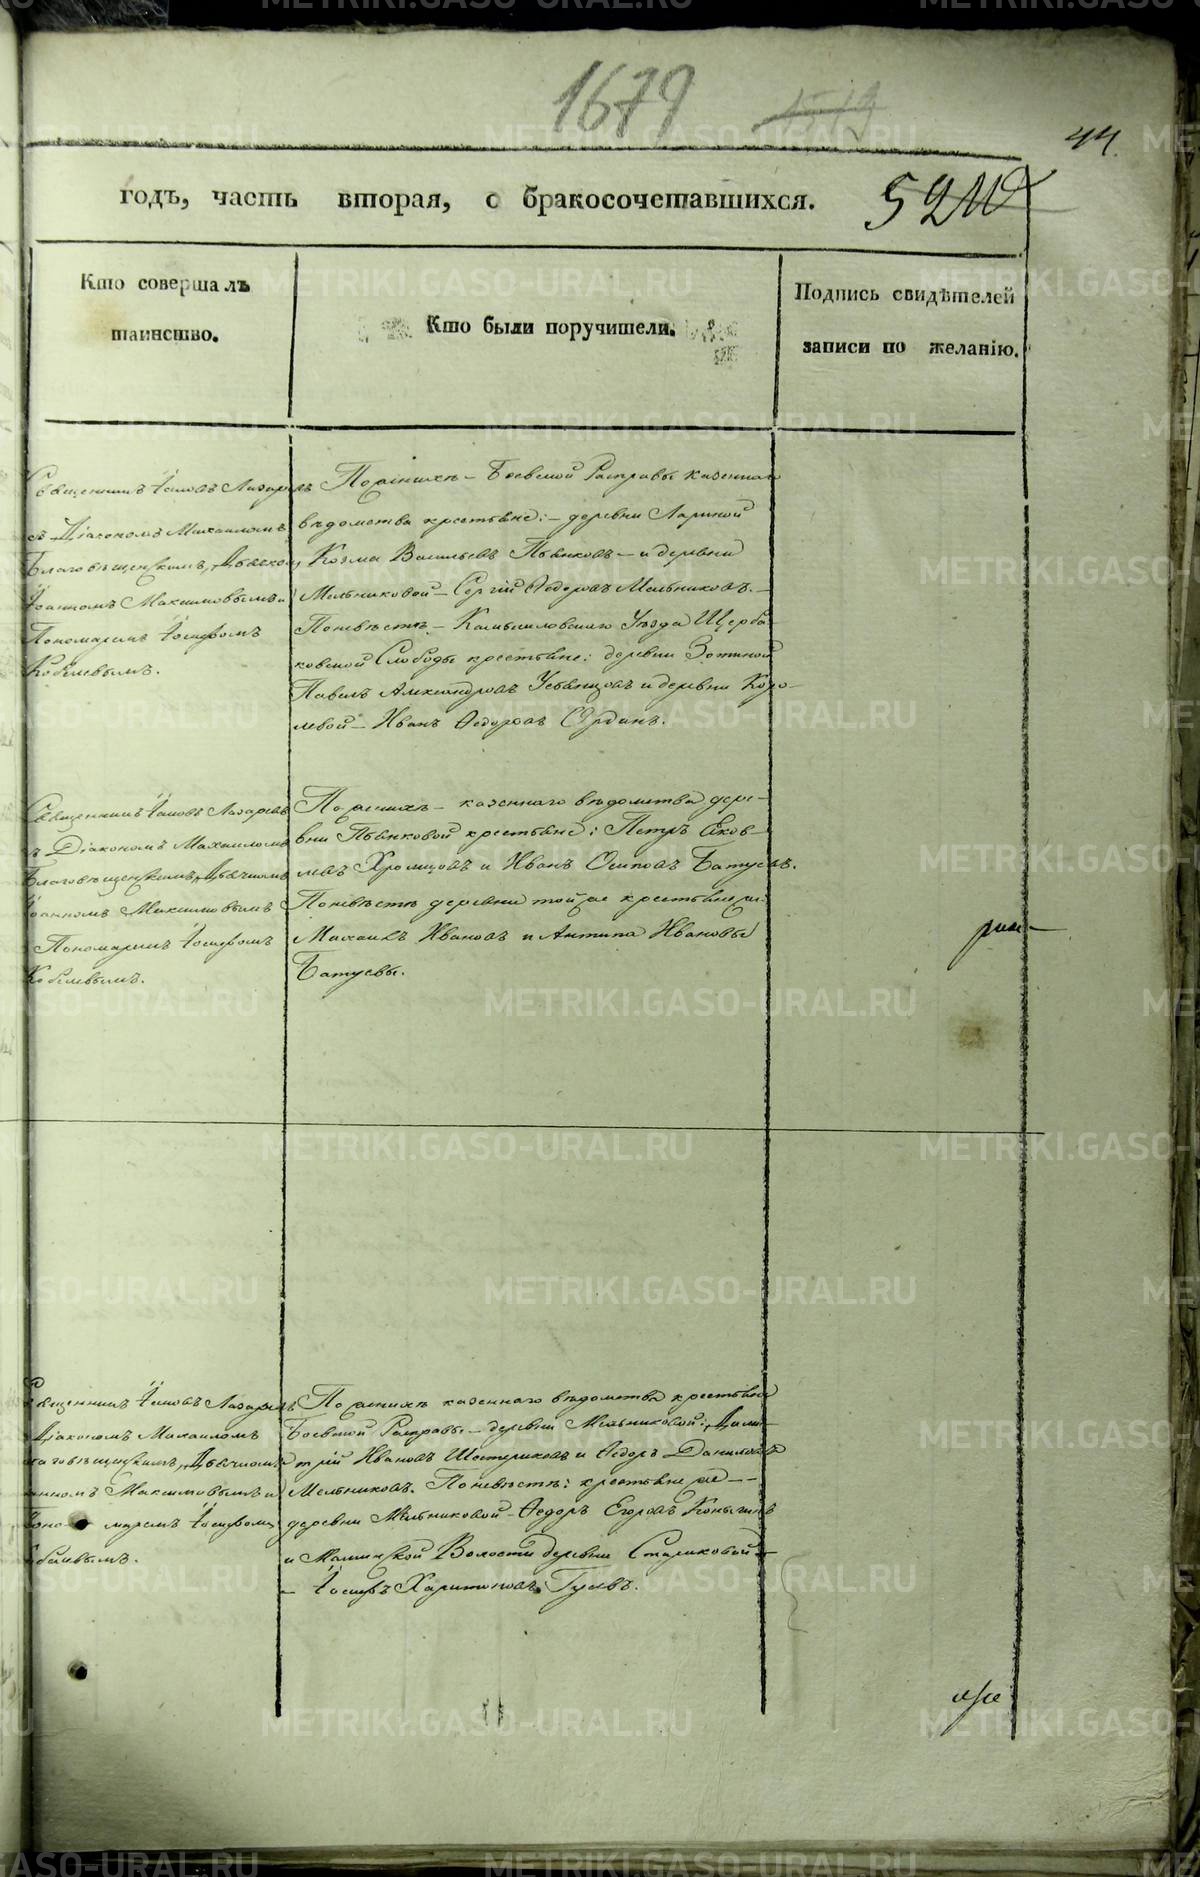 1679
44.
годъ, часть вторая, о бракосочетавшихся.
Кто совершалъ
таинство.
Кто были поручители.
Подпись свидѣтелей
записи по желанію.
Священникъ Іаковъ Лазаревъ
съ Діакономъ Михаиломъ
Благовѣщенскимъ, Дьячком
Іоанномъ Максимовымъ и
Пономаремъ Іосифомъ
Кобелевымъ.
По женихѣ – Боевской Расправы казеннаго
вѣдомства крестьяне: – деревни Лариной
Козма Васильевъ Пьянковъ – и деревни
Мельниковой – Сергій Ѳедоровъ Мельниковъ. –
По невѣстѣ – Камышловскаго Уѣзда Щерба
ковской Слободы крестьяне: деревни Зотиной
Павелъ Александровъ Устьянцовъ и деревни Коро–
левой – Иванъ Ѳедоровъ
Священникъ Іаковъ Лазаревъ
съ Діакономъ Михаиломъ
Благовѣщенскимъ, Дьячкомъ
Іоанномъ Максимовымъ
Пономаремъ Іосифомъ
Кобелевымъ.
По женихѣ – казеннаго вѣдомства дере–
вни Пьянковой крестьяне: Петръ Еков–
левъ Хромцовъ и Иванъ Осиповъ Батуевъ.
По невѣстѣ деревни той же крестьяне же
Михаилъ Ивановъ и Антипа Ивановы
Батуевы.
Священникъ Іаковъ Лазаревъ
Діакономъ Михаиломъ
Благовѣщенскимъ, Дьячкомъ
Іоанномъ Максимовымъ и
Пономаремъ Іосифомъ
Кобелевымъ.
По женихѣ казеннаго вѣдомства крестьяне
Боевской Расправы – деревни Мельниковой: Дими
трій Ивановъ Шостериковъ и Ѳедоръ Даниловъ
Мельниковъ. По невѣстѣ: крестьяне же – –
деревни Мельниковой – Ѳедоръ Егоровъ
и Маминской Волости деревни Стариковой –
– Іосифъ Харитоновъ Гуевъ.
METRIKI.GASO-URAL.RU